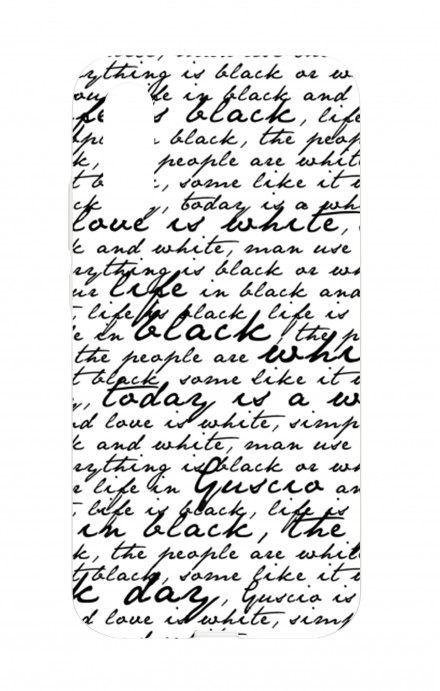 man use
rything is black or w
life in black and
is black, life
black, the peop
k, people are whit
t b , some like it
ck y, today is a wh
love is white,
k and white, man use
rything is black or wh
ur life in black and
, life is black, life is
e in black, the p
the people are whi
t black, some like it
, today is a w
d love is white, simp
k and white, man use
rything is black or wh
r life in Guscio an
, life is black, life is
in black, the
k, the people are whit
t black, some like it
k day, Guscio is
d love is white, simp